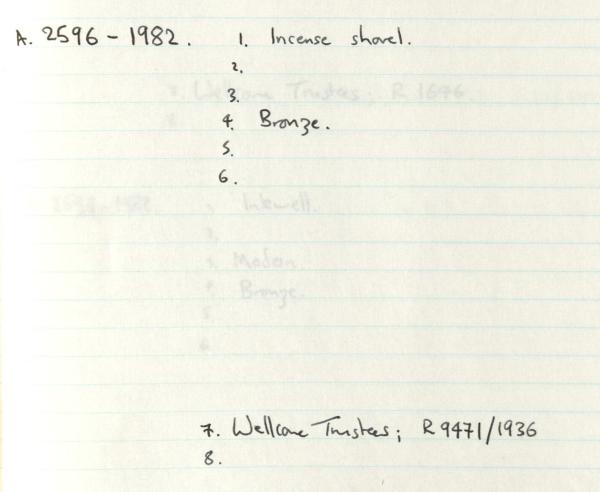 A. 2596 - 1982. 1. Incense shovel.
2.
3.
4. Bronze.
5.
6.
7. Wellcome Trustees; R 9471/1936
8.